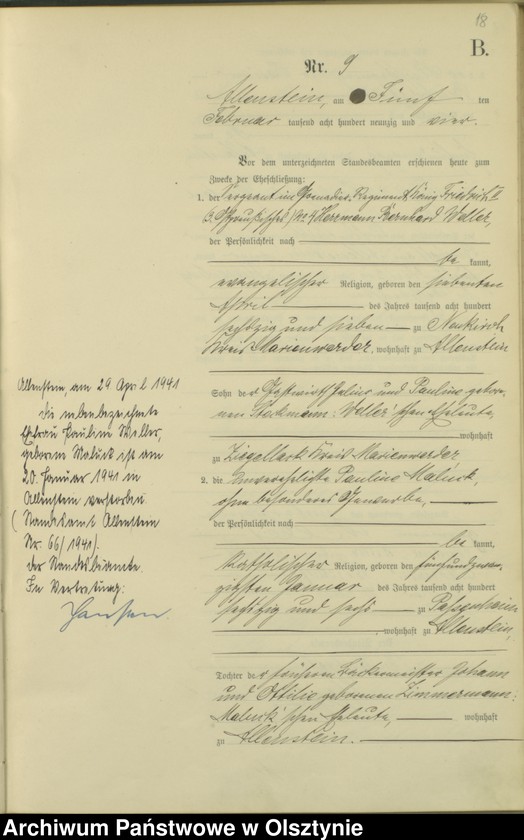 18
B.
Nr. 9
Allenstein, am Fünf ten
Februar tausend acht hundert neunzig und vier.
Vor dem unterzeichneten Standesbeamten erschienen heute zum
Zwecke der Eheschließung:
1. der Sergeant im Grenadier-Regiment König Friedrich II
Herrmann Bernhard Weller,
der Persönlichkeit nach
be kannt,
evangelischer Religion, geboren den siebenten
April des Jahres tausend acht hundert
sechszig und sieben zu Neukirch
Kreis Marienwerder, wohnhaft zu Allenstein
Sohn der Gastwirth Julius und Pauline gebore-
nen Weller'schen Eheleute,
wohnhaft
zu Ziegellack Kreis Marienwerder
2. die unverehelichte Pauline Maluck,
ohne besonderes Gewerbe,
der Persönlichkeit nach
be kannt,
katholischer Religion, geboren den fünfundzwan-
zigsten Januar des Jahres tausend acht hundert
sechszig und sechs zu Passenheim
wohnhaft zu Allenstein,
Tochter der früheren Bäckermeister Johann
und Ottilie geborenen Zimmermann-
Maluck'schen Eheleute, wohnhaft
zu Allenstein.
Allenstein, am 29 April 1941
Die nebenbezeichnete
Ehefrau Pauline Weller,
geborene Maluck ist am
20. Januar 1941 in
Allenstein verstorben
(Standesamt Allenstein
Nr. 66/1941).
Der Standesbeamte.
In Vertretung:
Hansen
Archiwum Państwowe w Olsztynie